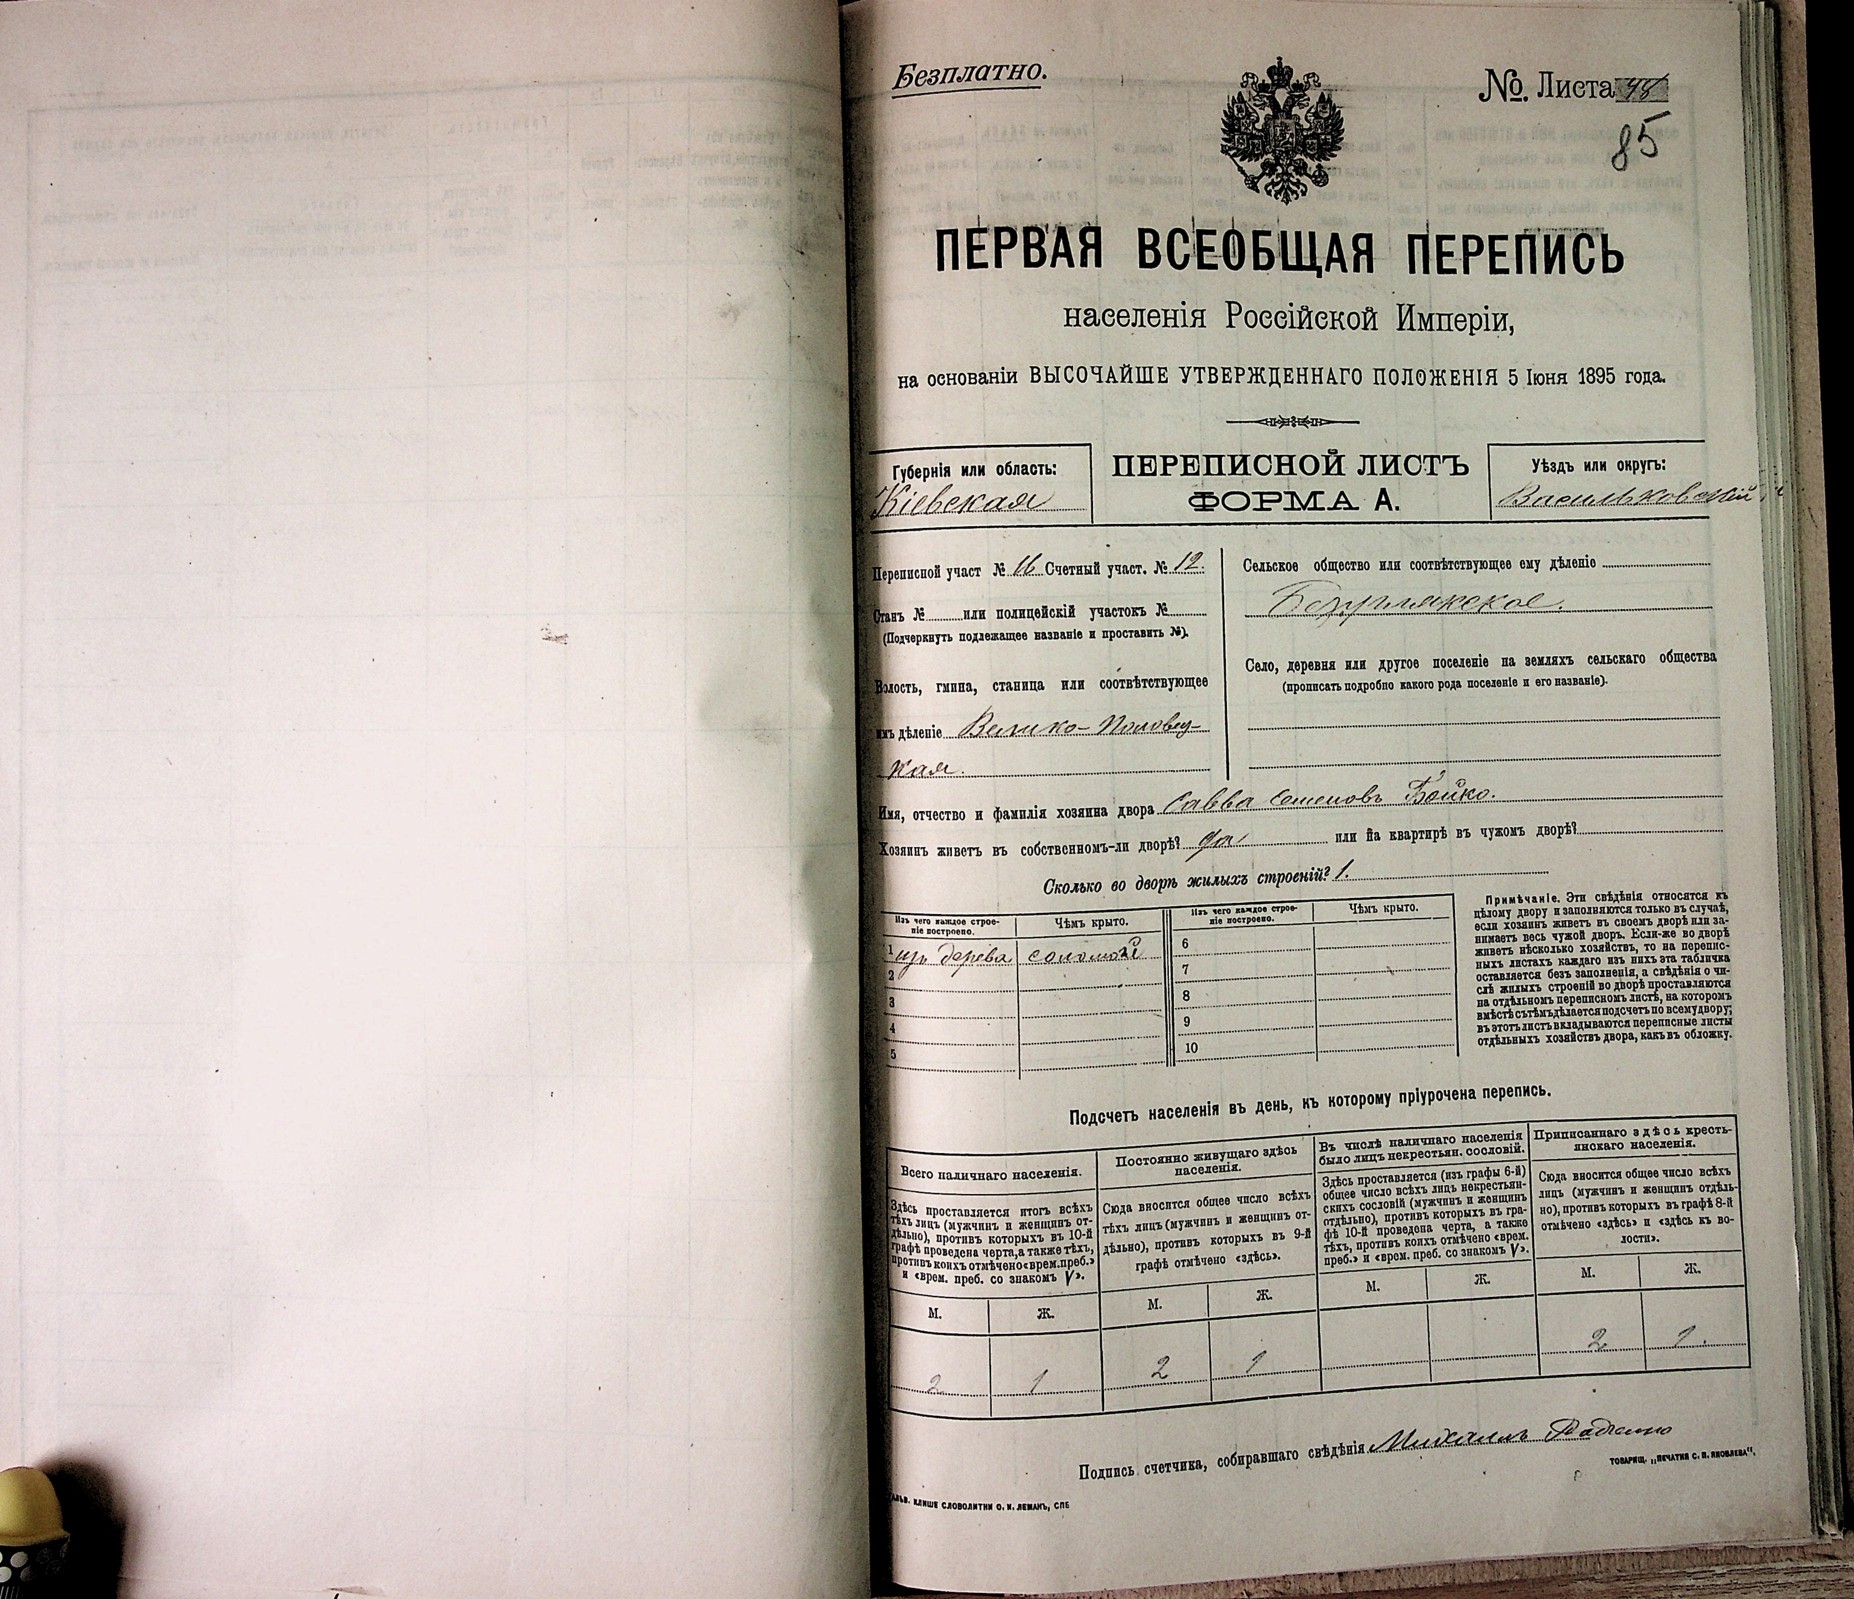 Безплатно.
№ Листа 48
85
ПЕРВАЯ ВСЕОБЩАЯ ПЕРЕПИСЬ
населенія Россійской Имперіи,
на основаніи ВЫСОЧАЙШЕ УТВЕРЖДЕННАГО ПОЛОЖЕНІЯ 5 Іюня 1895 года.
Губернія или область:
Кіевская
ПЕРЕПИСНОЙ ЛИСТЪ
ФОРМА А.
Уѣздъ или округъ:
Васильковскій
Переписной участ № 16 Счетный участ. № 12.
Станъ № или полицейскій участокъ №
(Подчеркнуть подлежащее названіе и проставить №).
Волость, гмина, станица или соотвѣтствующее
имъ дѣленіе Велико-Половец-
кая.
Сельское общество или соотвѣтствующее ему дѣленіе
Село, деревня или другое поселеніе на земляхъ сельскаго общества
(прописать подробно какого рода поселеніе и его названіе).
Имя, отчество и фамилія хозяина двора Савва Семеновъ Бойко.
Хозяинъ живетъ въ собственномъ-ли дворѣ? да или на квартирѣ въ чужомъ дворѣ?
Сколько во дворѣ жилыхъ строеній? 1.
Изъ чего каждое строе-
ніе построено.
Чѣмъ крыто.
1 изъ дерева соломой
2
3
4
5
Изъ чего каждое строе-
ніе построено.
Чѣмъ крыто.
6
7
8
9
10
Примѣчаніе. Эти свѣдѣнія относятся къ
цѣлому двору и заполняются только въ случаѣ,
если хозяин живетъ въ своемъ дворѣ или за-
нимаетъ весь чужой дворъ. Если-же во дворѣ
живетъ нѣсколько хозяйствъ, то на перепис-
ныхъ листахъ каждаго изъ нихъ эта табличка
оставляется безъ заполненія, а свѣдѣнія о чи-
слѣ жилыхъ строеній во дворѣ проставляются
на отдѣльномъ переписномъ листѣ, на которомъ
вмѣстѣ съ тѣмъ дѣлается подсчетъ по всему двору;
въ этотъ листъ вкладываются переписные листы
отдѣльныхъ хозяйствъ двора, какъ въ обложку.
Подсчетъ населенія въ день, къ которому пріурочена перепись.
Всего наличнаго населенія.
Здѣсь проставляется итогъ всѣхъ
тѣхъ лицъ (мужчинъ и женщинъ от-
дѣльно), против которыхъ въ 10-й
графѣ проведена черта, а также тѣхъ,
противъ коихъ отмѣчено «врем. преб.»
и «врем. преб. со знакомъ V».
М. Ж.
2 1
Постоянно живущаго здѣсь
населенія.
Сюда вносится общее число всѣхъ
тѣхъ лицъ (мужчинъ и женщинъ от-
дѣльно), противъ которыхъ въ 9-й
графѣ отмѣчено «здѣсь».
М. Ж.
2 1
Въ числѣ наличнаго населенія
было лицъ некрестьян. сословій.
Здѣсь проставляется (изъ графы 6-й)
общее число всѣхъ лицъ некрестьян-
скихъ сословій (мужчинъ и женщинъ
отдѣльно), противъ которыхъ въ гра-
фѣ 10-й проведена черта, а также
тѣхъ, противъ коихъ отмѣчено «врем.
преб.» и «врем. преб. со знакомъ V».
М. Ж.
Приписаннаго здѣсь кресть-
янскаго населенія.
Сюда вносится общее число всѣхъ
лицъ (мужчинъ и женщинъ отдѣль-
но), противъ которыхъ въ графѣ 8-й
отмѣчено «здѣсь» и «здѣсь къ во-
лости».
М. Ж.
2 1.
Подпись счетчика, собиравшаго свѣдѣнія Михаилъ
ТОВАРИЩ. „ПЕЧАТНЯ С. П. ЯКОВЛЕВА“.
КЛИШЕ СЛОВОЛИТНИ О. И. ЛЕМАНЪ, СПБ